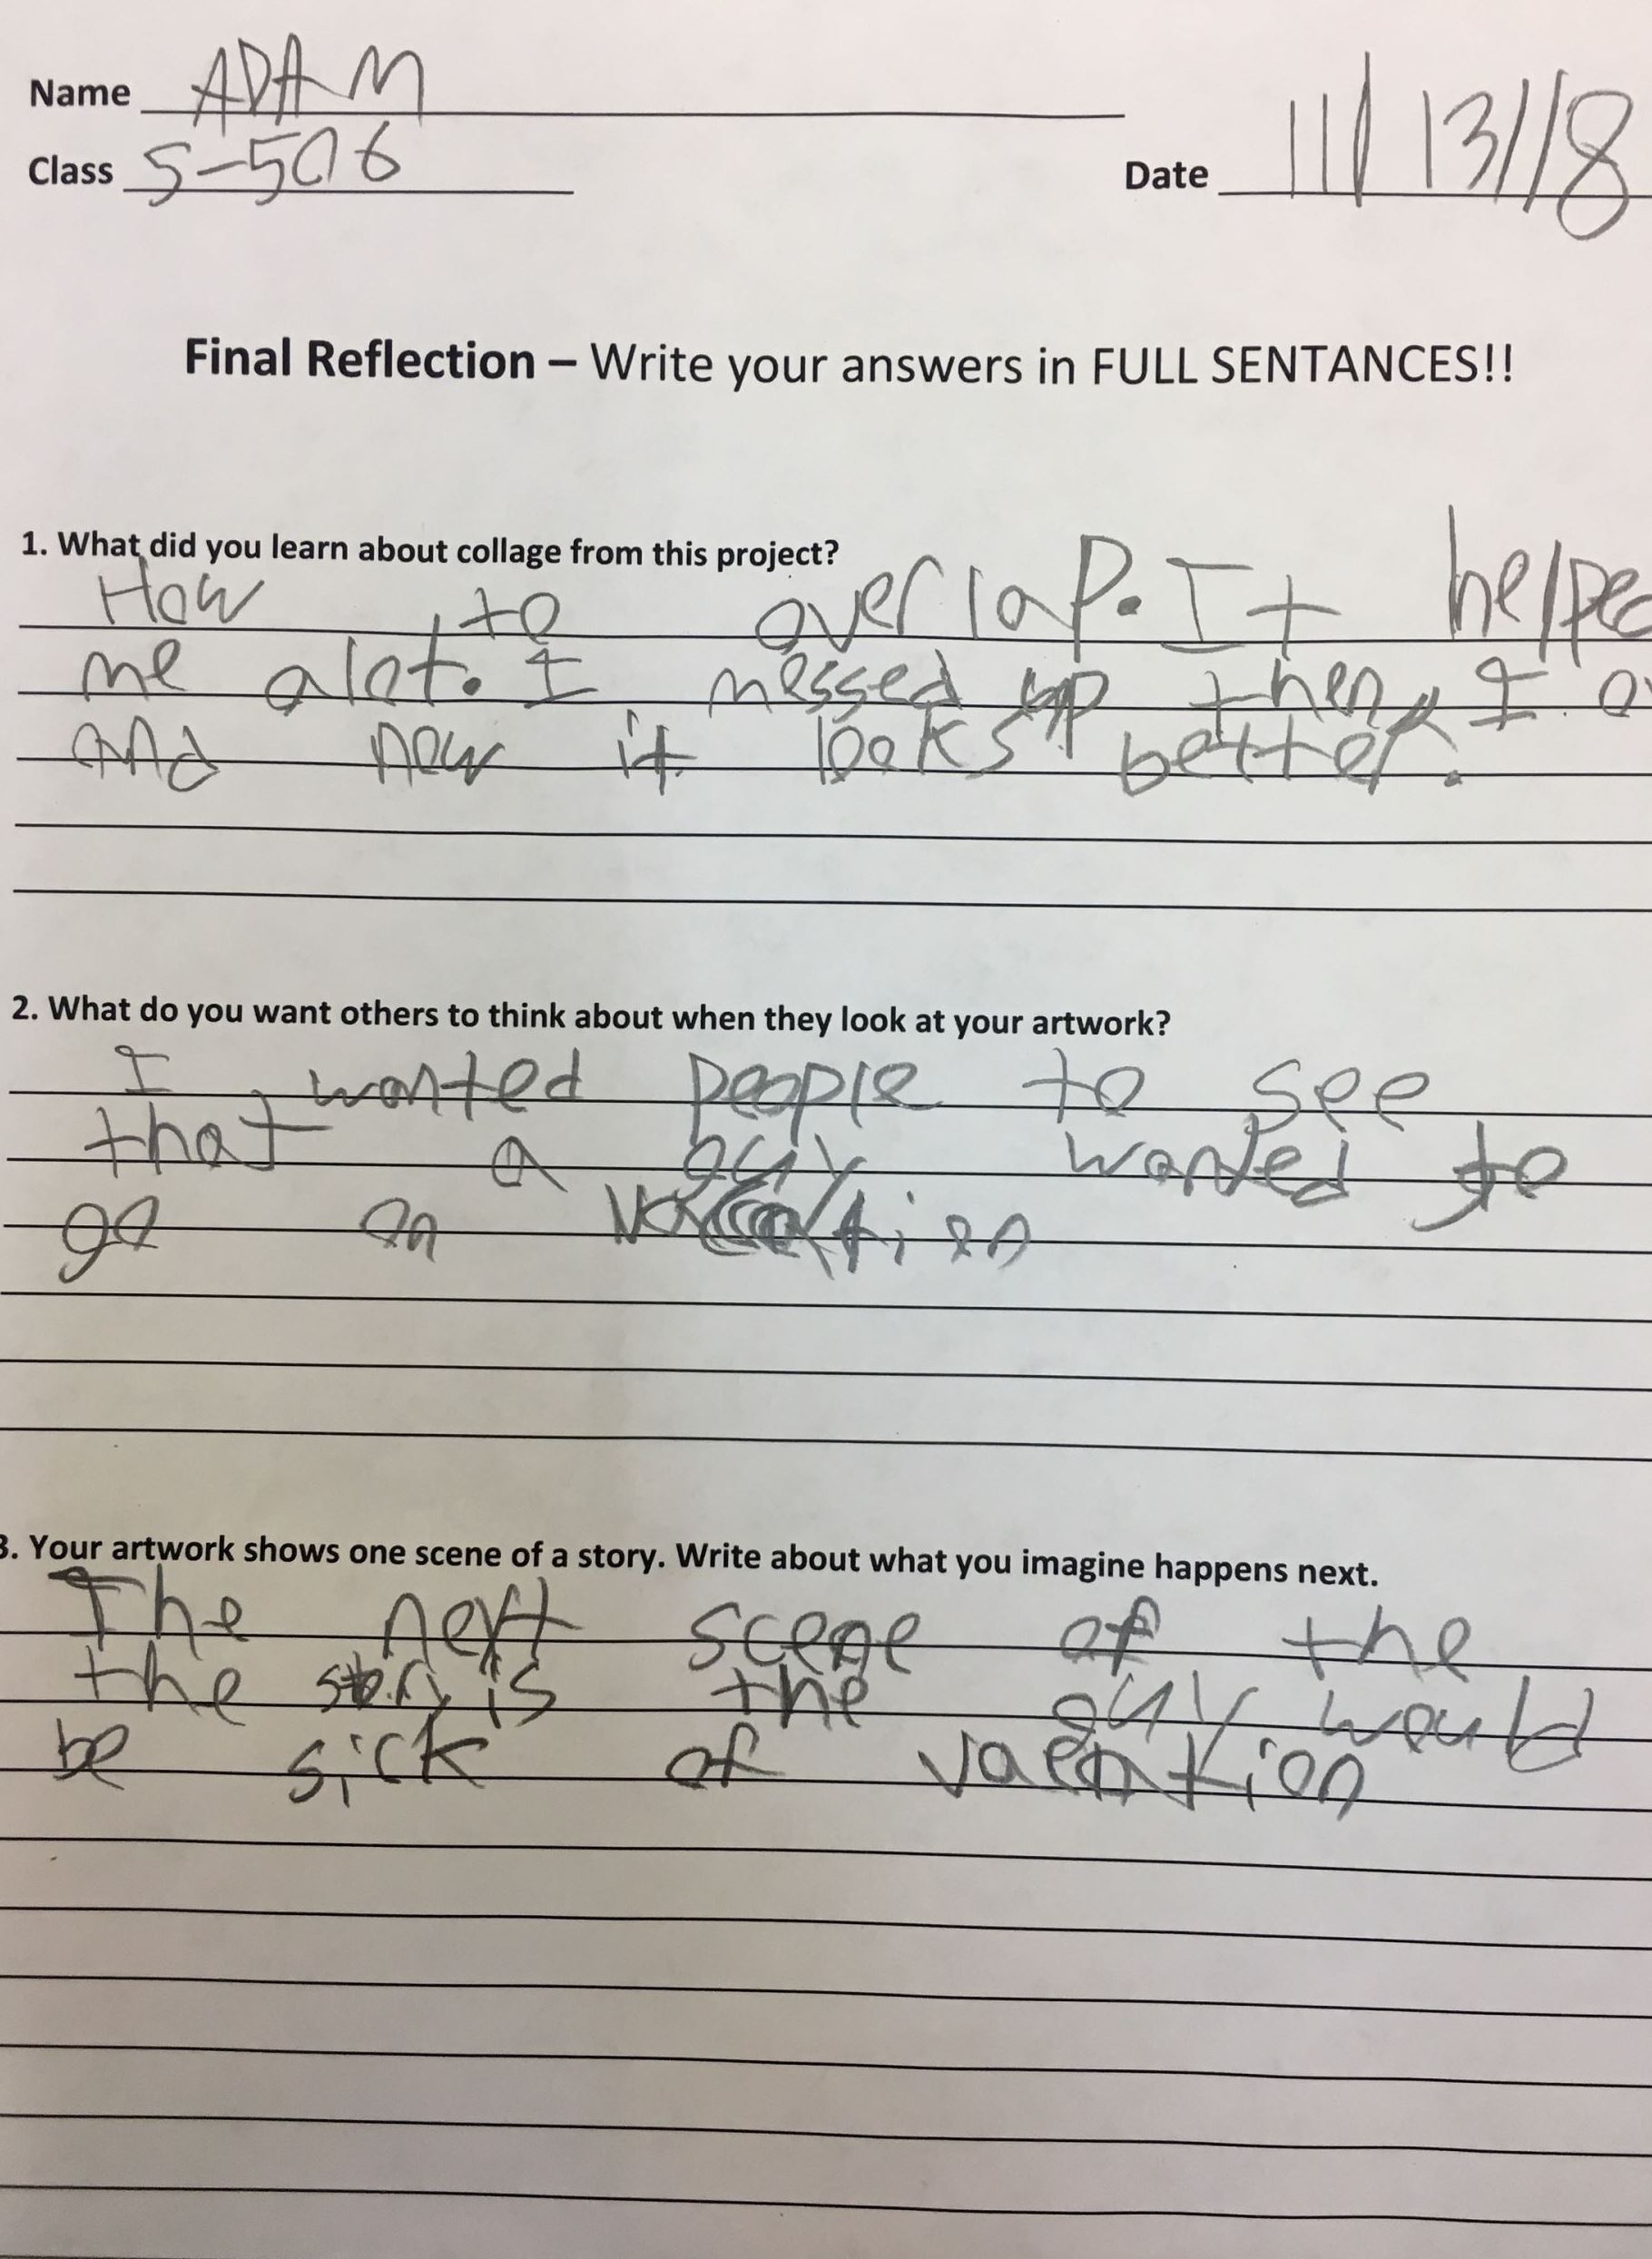 Name ADAM
Class 5-506
Date 11/13/18
Final Reflection – Write your answers in FULL SENTANCES!!
1. What did you learn about collage from this project?
How to overlap. It helped
me alot. I messed up then I
and now it looks better.
2. What do you want others to think about when they look at your artwork?
I wanted people to see
that a guy wanted to
go on
3. Your artwork shows one scene of a story. Write about what you imagine happens next.
The next scene of the
the story is the guy would
be sick of